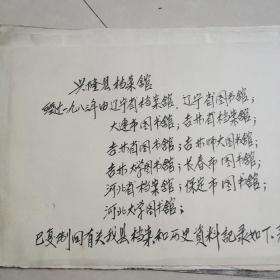 兴隆县档案馆
经过一九八三年由辽宁省档案馆、辽宁省图书馆;
大连市图书馆;吉林省档案馆;
吉林省图书馆;吉林师大图书馆;
吉林大学图书馆;长春市图书馆;
河北省档案馆;保定市图书馆;
河北大学图书馆;
已复制回有关我县档案和历史資料記录如下: